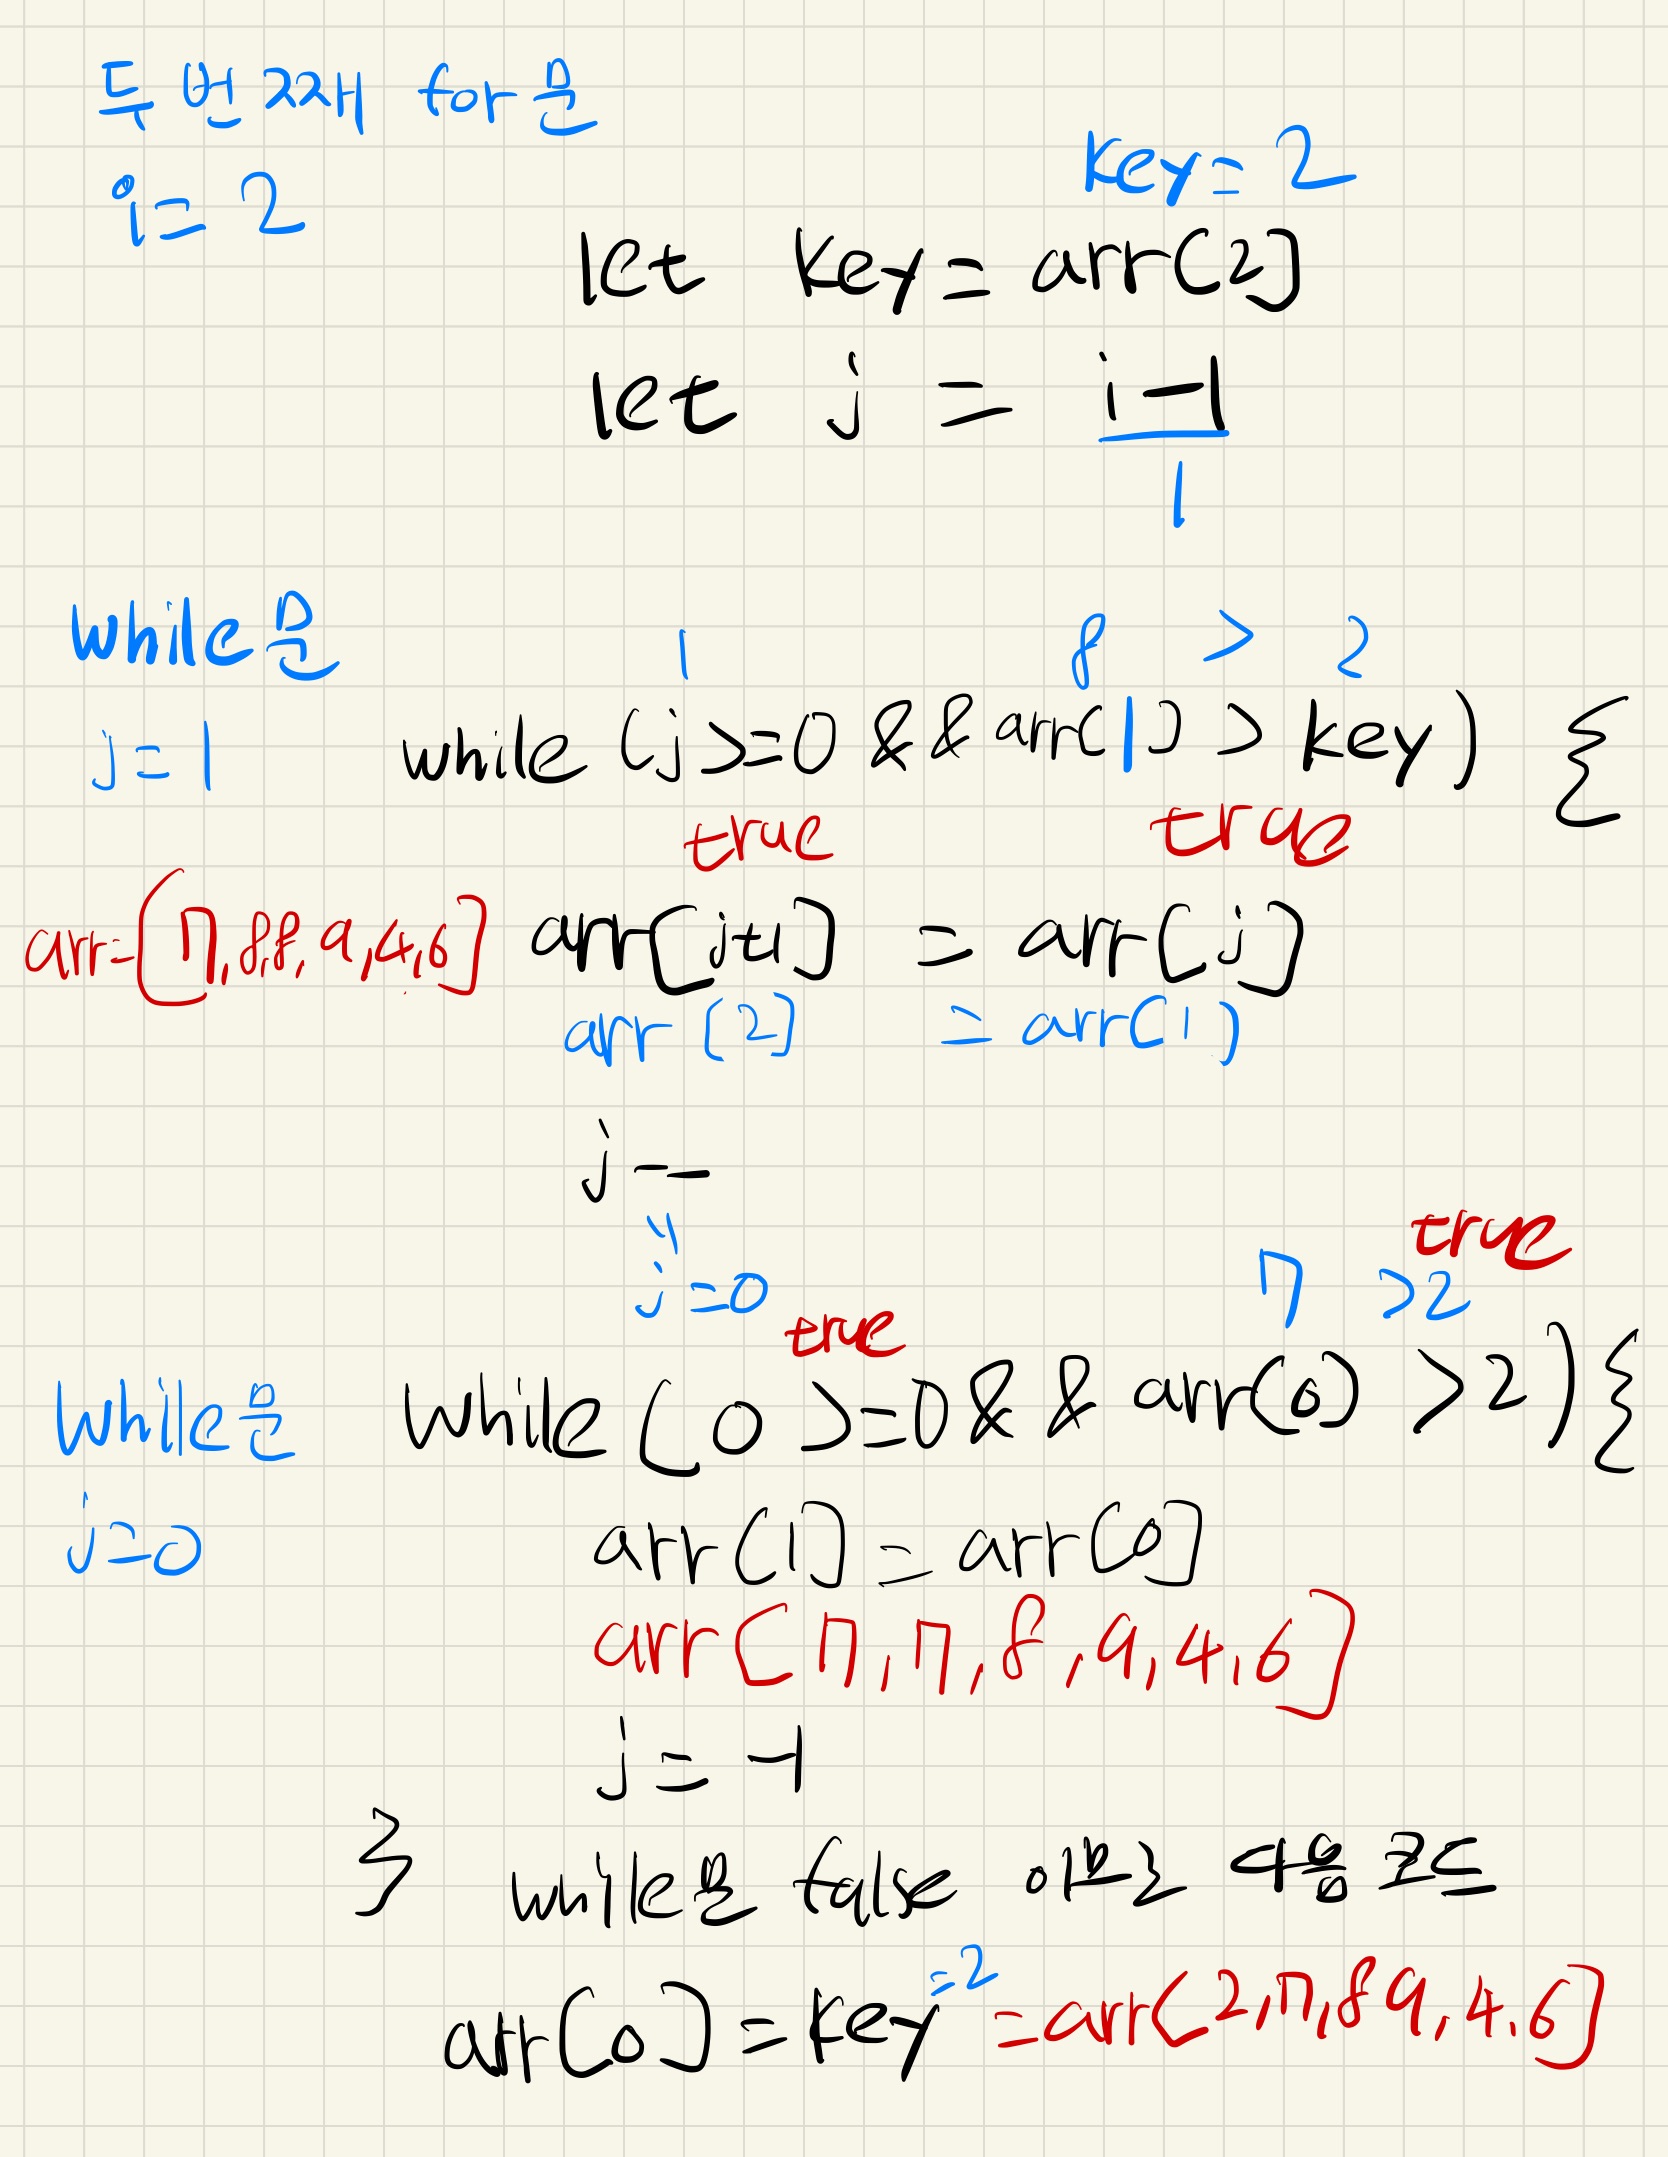 두 번째 for문
i=2
key=2
let key = arr[2]
let j = i-1
1
while문
1 8 > 2
j=1
while (j>=0 && arr[1] > key) {
true true
arr=[7,8,8,9,4,6]
arr[j+1] = arr[j]
arr[2] = arr[1]
j--
j=0
true
7 >2
true
while문
while(0>=0 && arr[0] >2){
j=0
arr[1] = arr[0]
arr[7,7,8,9,4,6]
j=-1
} while문 false 이므로 다음 코드
arr[0]=key =2 =arr[2,7,8 9,4,6]